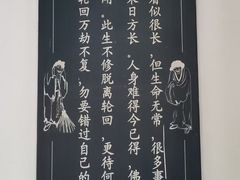 看似很长，但生命无常，很多事
来日方长。人身难得今已得，佛
。此生不修脱离轮回，更待何
轮回万劫不复，勿要错过自己的